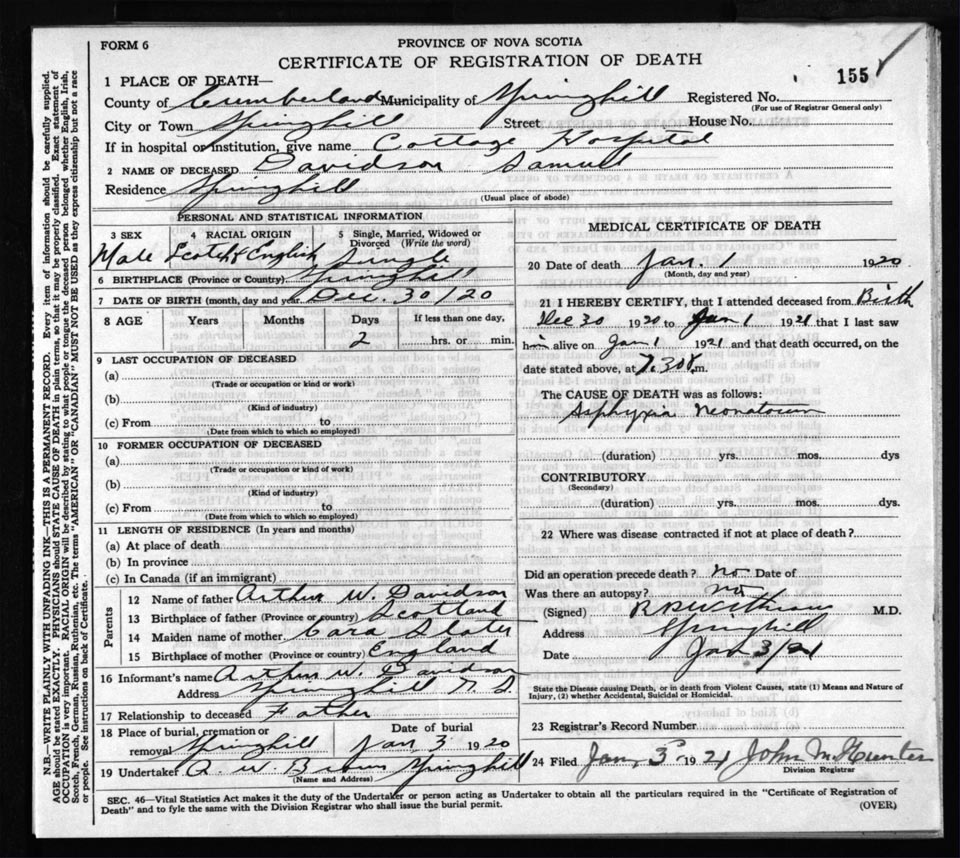 FORM 6
PROVINCE OF NOVA SCOTIA
CERTIFICATE OF REGISTRATION OF DEATH
155
1 PLACE OF DEATH—
County of Cumberland Municipality of Springhill Registered No.
(For use of Registrar General only)
City or Town Springhill Street House No.
If in hospital or institution, give name Cottage Hospital
2 NAME OF DECEASED Davidson Samuel
Residence Springhill
(Usual place of abode)
PERSONAL AND STATISTICAL INFORMATION
3 SEX 4 RACIAL ORIGIN 5 Single, Married, Widowed or Divorced (Write the word)
Male Scotch & English Single
6 BIRTHPLACE (Province or Country) Springhill
7 DATE OF BIRTH (month, day and year) Dec. 30/20
8 AGE Years Months Days If less than one day,
2 hrs. or min.
9 LAST OCCUPATION OF DECEASED
(a)
(Trade or occupation or kind or work)
(b)
(Kind of industry)
(c) From to
(Date from which to which so employed)
10 FORMER OCCUPATION OF DECEASED
(a)
(Trade or occupation or kind of work)
(b)
(Kind of industry)
(c) From to
(Date from which to which so employed)
11 LENGTH OF RESIDENCE (In years and months)
(a) At place of death
(b) In province
(c) In Canada (if an immigrant)
Parents
12 Name of father Arthur W. Davidson
13 Birthplace of father (Province or country) Scotland
14 Maiden name of mother Slater
15 Birthplace of mother (Province or country) England
16 Informant's name Arthur W. Davidson
Address Springhill N. S.
17 Relationship to deceased Father
18 Place of burial, cremation or removal Springhill Date of burial Jan 3 1920
19 Undertaker A. W. Brown Springhill
(Name and Address)
MEDICAL CERTIFICATE OF DEATH
20 Date of death Jan. 1 1920
(Month, day and year)
21 I HEREBY CERTIFY, that I attended deceased from Birth
Dec 30 1920 to Jan 1 1921 that I last saw
him alive on Jan 1 1921 and that death occurred, on the
date stated above, at 7.30 m.
The CAUSE OF DEATH was as follows:
Asphyxia Neonatorum
(duration) yrs. mos. dys
CONTRIBUTORY
(Secondary)
(duration) yrs. mos. dys.
22 Where was disease contracted if not at place of death?
Did an operation precede death? no Date of
Was there an autopsy? no
(Signed) M.D.
Address Springhill
Date Jan 3/21
State the Disease causing Death, or in death from Violent Causes, state (1) Means and Nature of
Injury, (2) whether Accidental, Suicidal or Homicidal.
23 Registrar's Record Number
24 Filed Jan, 3 1921 John M Hunter
Division Registrar
SEC. 46—Vital Statistics Act makes it the duty of the Undertaker or person acting as Undertaker to obtain all the particulars required in the "Certificate of Registration of
Death" and to fyle the same with the Division Registrar who shall issue the burial permit.
(OVER)
N.B.—WRITE PLAINLY WITH UNFADING INK—THIS IS A PERMANENT RECORD. Every item of information should be carefully supplied.
AGE should be stated EXACTLY. PHYSICIANS should STATE CAUSE OF DEATH in plain terms, so that it may be properly classified. Exact statement of
OCCUPATION is very important. RACIAL ORIGIN will be described by stating to what people or tongue the deceased person belonged, whether English, Irish,
Scotch, French, German, Russian, Ruthenian, etc. The terms "AMERICAN" OR "CANADIAN" MUST NOT BE USED as they express citizenship but not a race
or people. See instructions on back of Certificate.